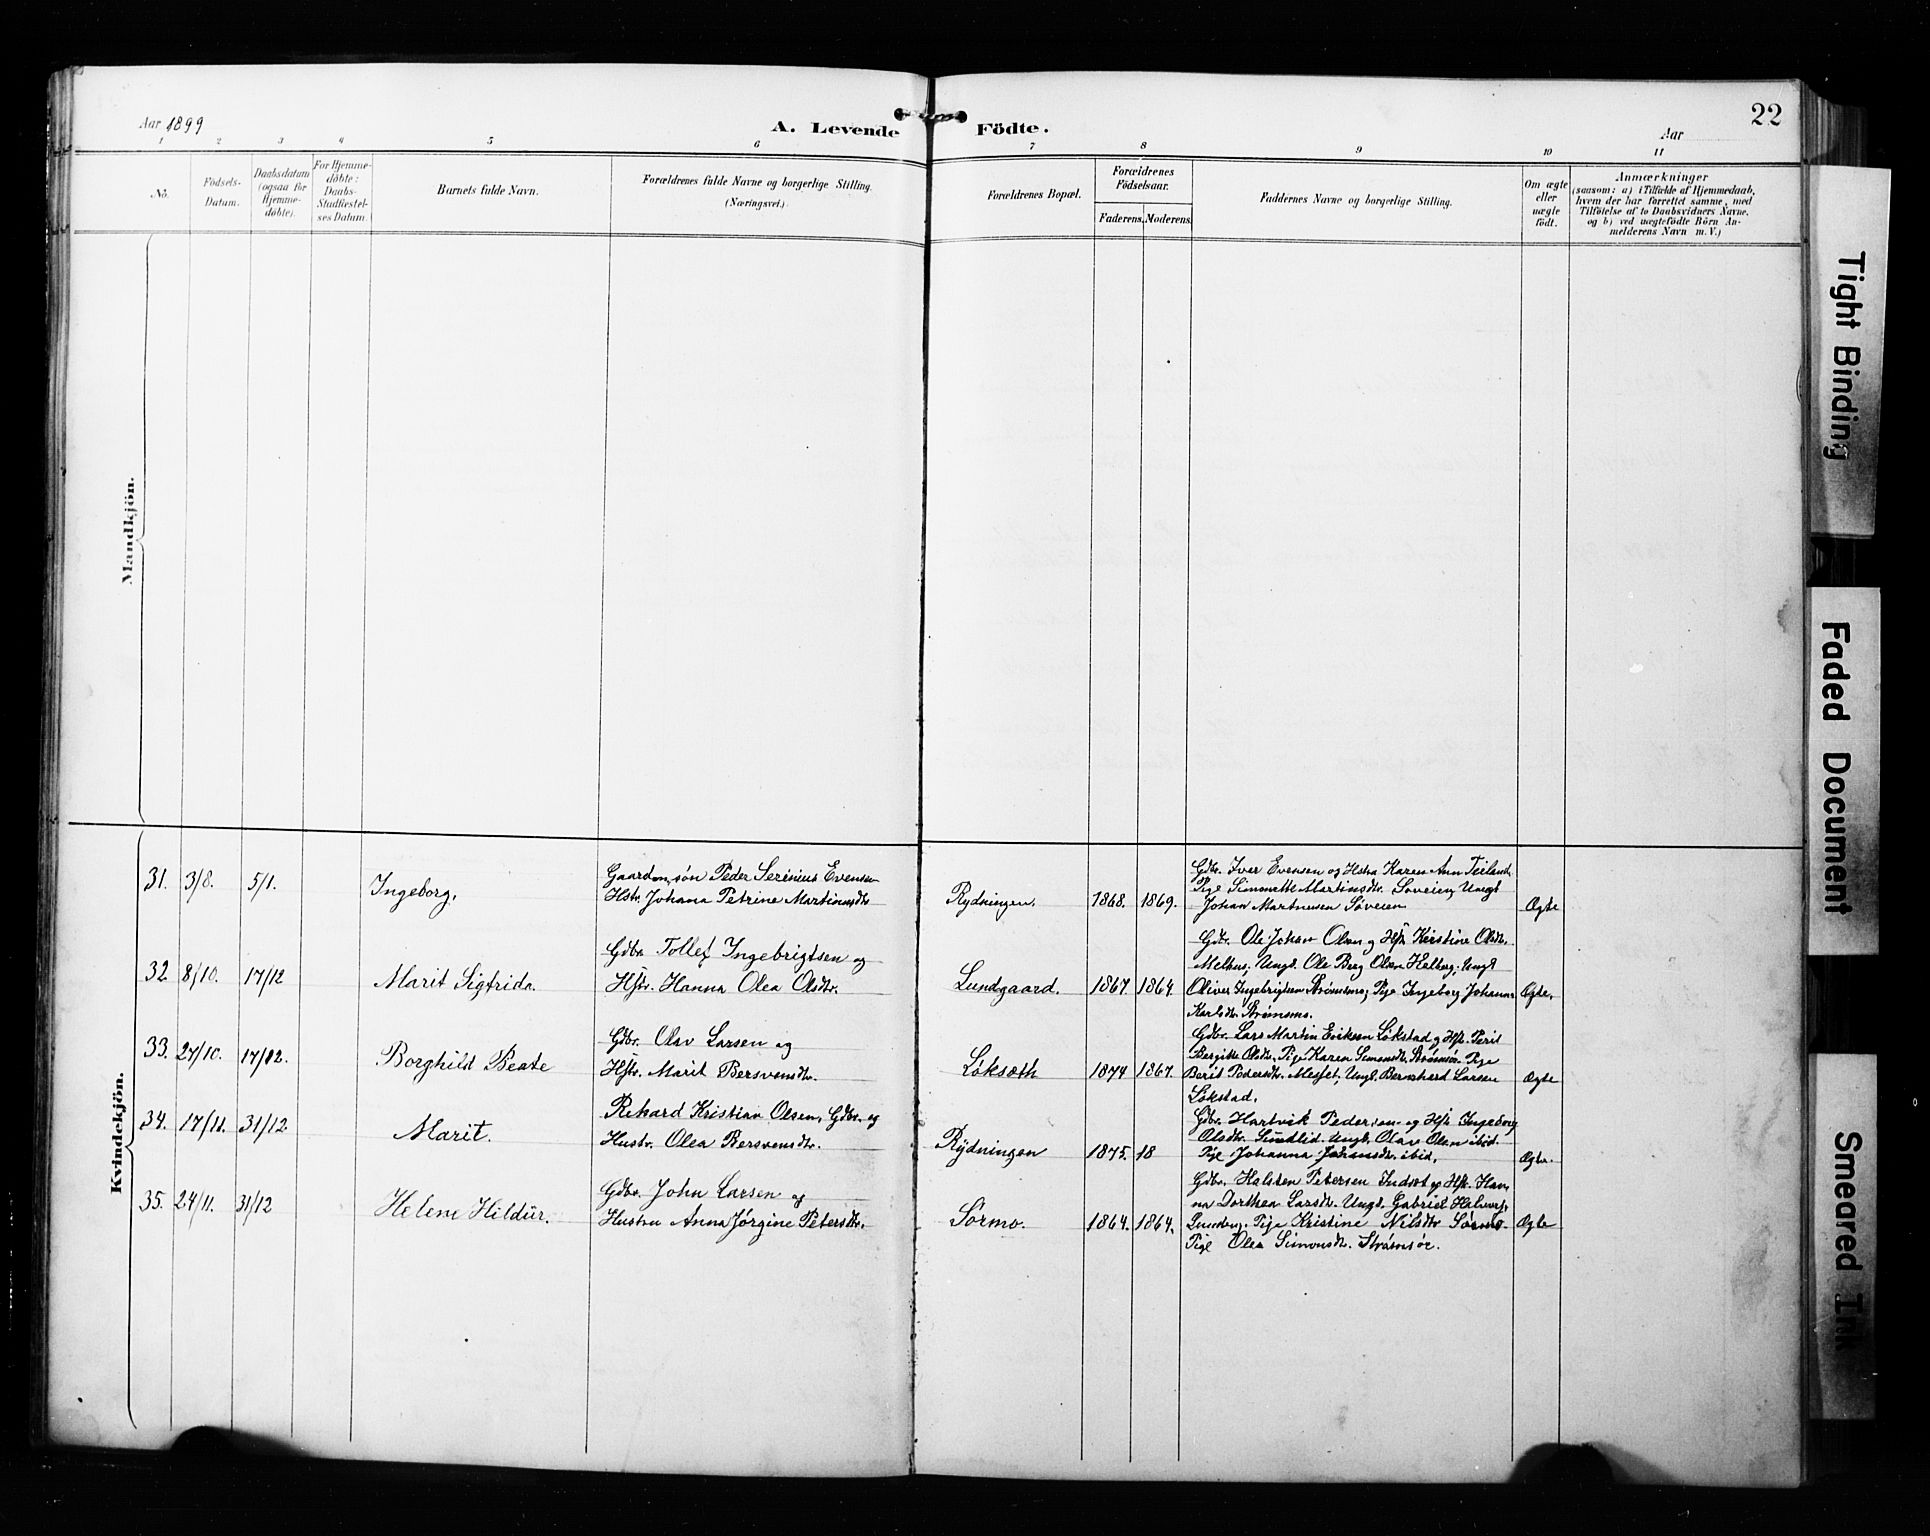 Aar 1899
A. Levende Födte.
Aar
22
1 2 3 4 5 6 7 8 9 10 11
No.
Födsels-Datum.
Daabsdatum (ogsaa for Hjemme-döbte).
For Hjemme-döbte: Daabs-Stadfæstel-ses Datum.
Barnets fulde Navn.
Forældrenes fulde Navne og borgerlige Stilling.
(Næringsvei.)
Forældrenes Bopæl.
Forældrenes Födselsaar.
Faderens. Moderens.
Faddernes Navne og borgerlige Stilling.
Om ægte eller uægte födt.
Anmærkninger
(saasom: a) i Tilfælde af Hjemmedaab,
hvem der har forrettet samme, med
Tilföielse af to Daabsvidners Navne,
og b) ved uægtefödte Börn An-
melderens Navn m. V.)
Mandkjön.
Kvindekjön.
31. 3/8. 5/1. Ingeborg.
Gaardm.søn Peder Serinius Evensen
Hstr. Johana Petrine Martinusdtr
Rydningen. 1868. 1869.
Gdbr. Iver Evensen og Hstru Karen Ann
Pige Simonette Martinsdtr. Søveien, Ungk
Johan Martinusen Søveien
Ægte
32 8/10. 17/12 Marit Sigfrida.
Gdbr. Tollef Ingebrigtsen og
Hstr. Hanna Olea Olsdtr.
Lundgaard. 1867 1864.
Gdbr. Ole Johan Olsen og Hst. Kirstine Olsdtr.
Melhus, Ungk. Ole Berg Olsen Ungk
Oliver Ingebrigtsen Strømsmo, Pige Ingeborg Johanna
Karlsdtr. Strømsmo.
Ægte.
33. 27/10. 17/12. Borghild Beate
Gdbr. Olav Larsen og
Hstr. Marit Bersvensdtr.
Løksæth 1874 1867.
Gdbr. Lars Martin Eriksen Løkstad og Hst.
Bergitte Olsdtr, Pige Karen Simonsdtr. Strømsør Pige
Berit Pedersdtr. Ungk. Bernhard Larsen
Løkstad.
Ægte
34. 17/11. 31/12 Marit.
Rikard Kristian Olsen, Gdbr. og
Hustr. Olea Bersvensdtr.
Rydningen 1875. 18
Gdbr. Hartvik Pedersen og Hst Ingeborg
Olsdtr. Sundlid Ungk. Olav Olsen ibid.
Pige Johanna Johansdtr. ibid.
Ægte.
35. 24/11. 31/12 Helene Hildur.
Gdbr. John Larsen og
Hustru Anna Jørgine Petersdtr.
Sørmo. 1864. 1864.
Gdbr. Halsten Petersen Indset og Hst. Han-
na Dorthea Larsdtr. Ungk. Gabriel
Pige Kristine Nilsdtr Sørmo
Pige Olea Simonsdtr. Strømsør.
Ægte
Tight Binding
Faded Document
Smeared Ink